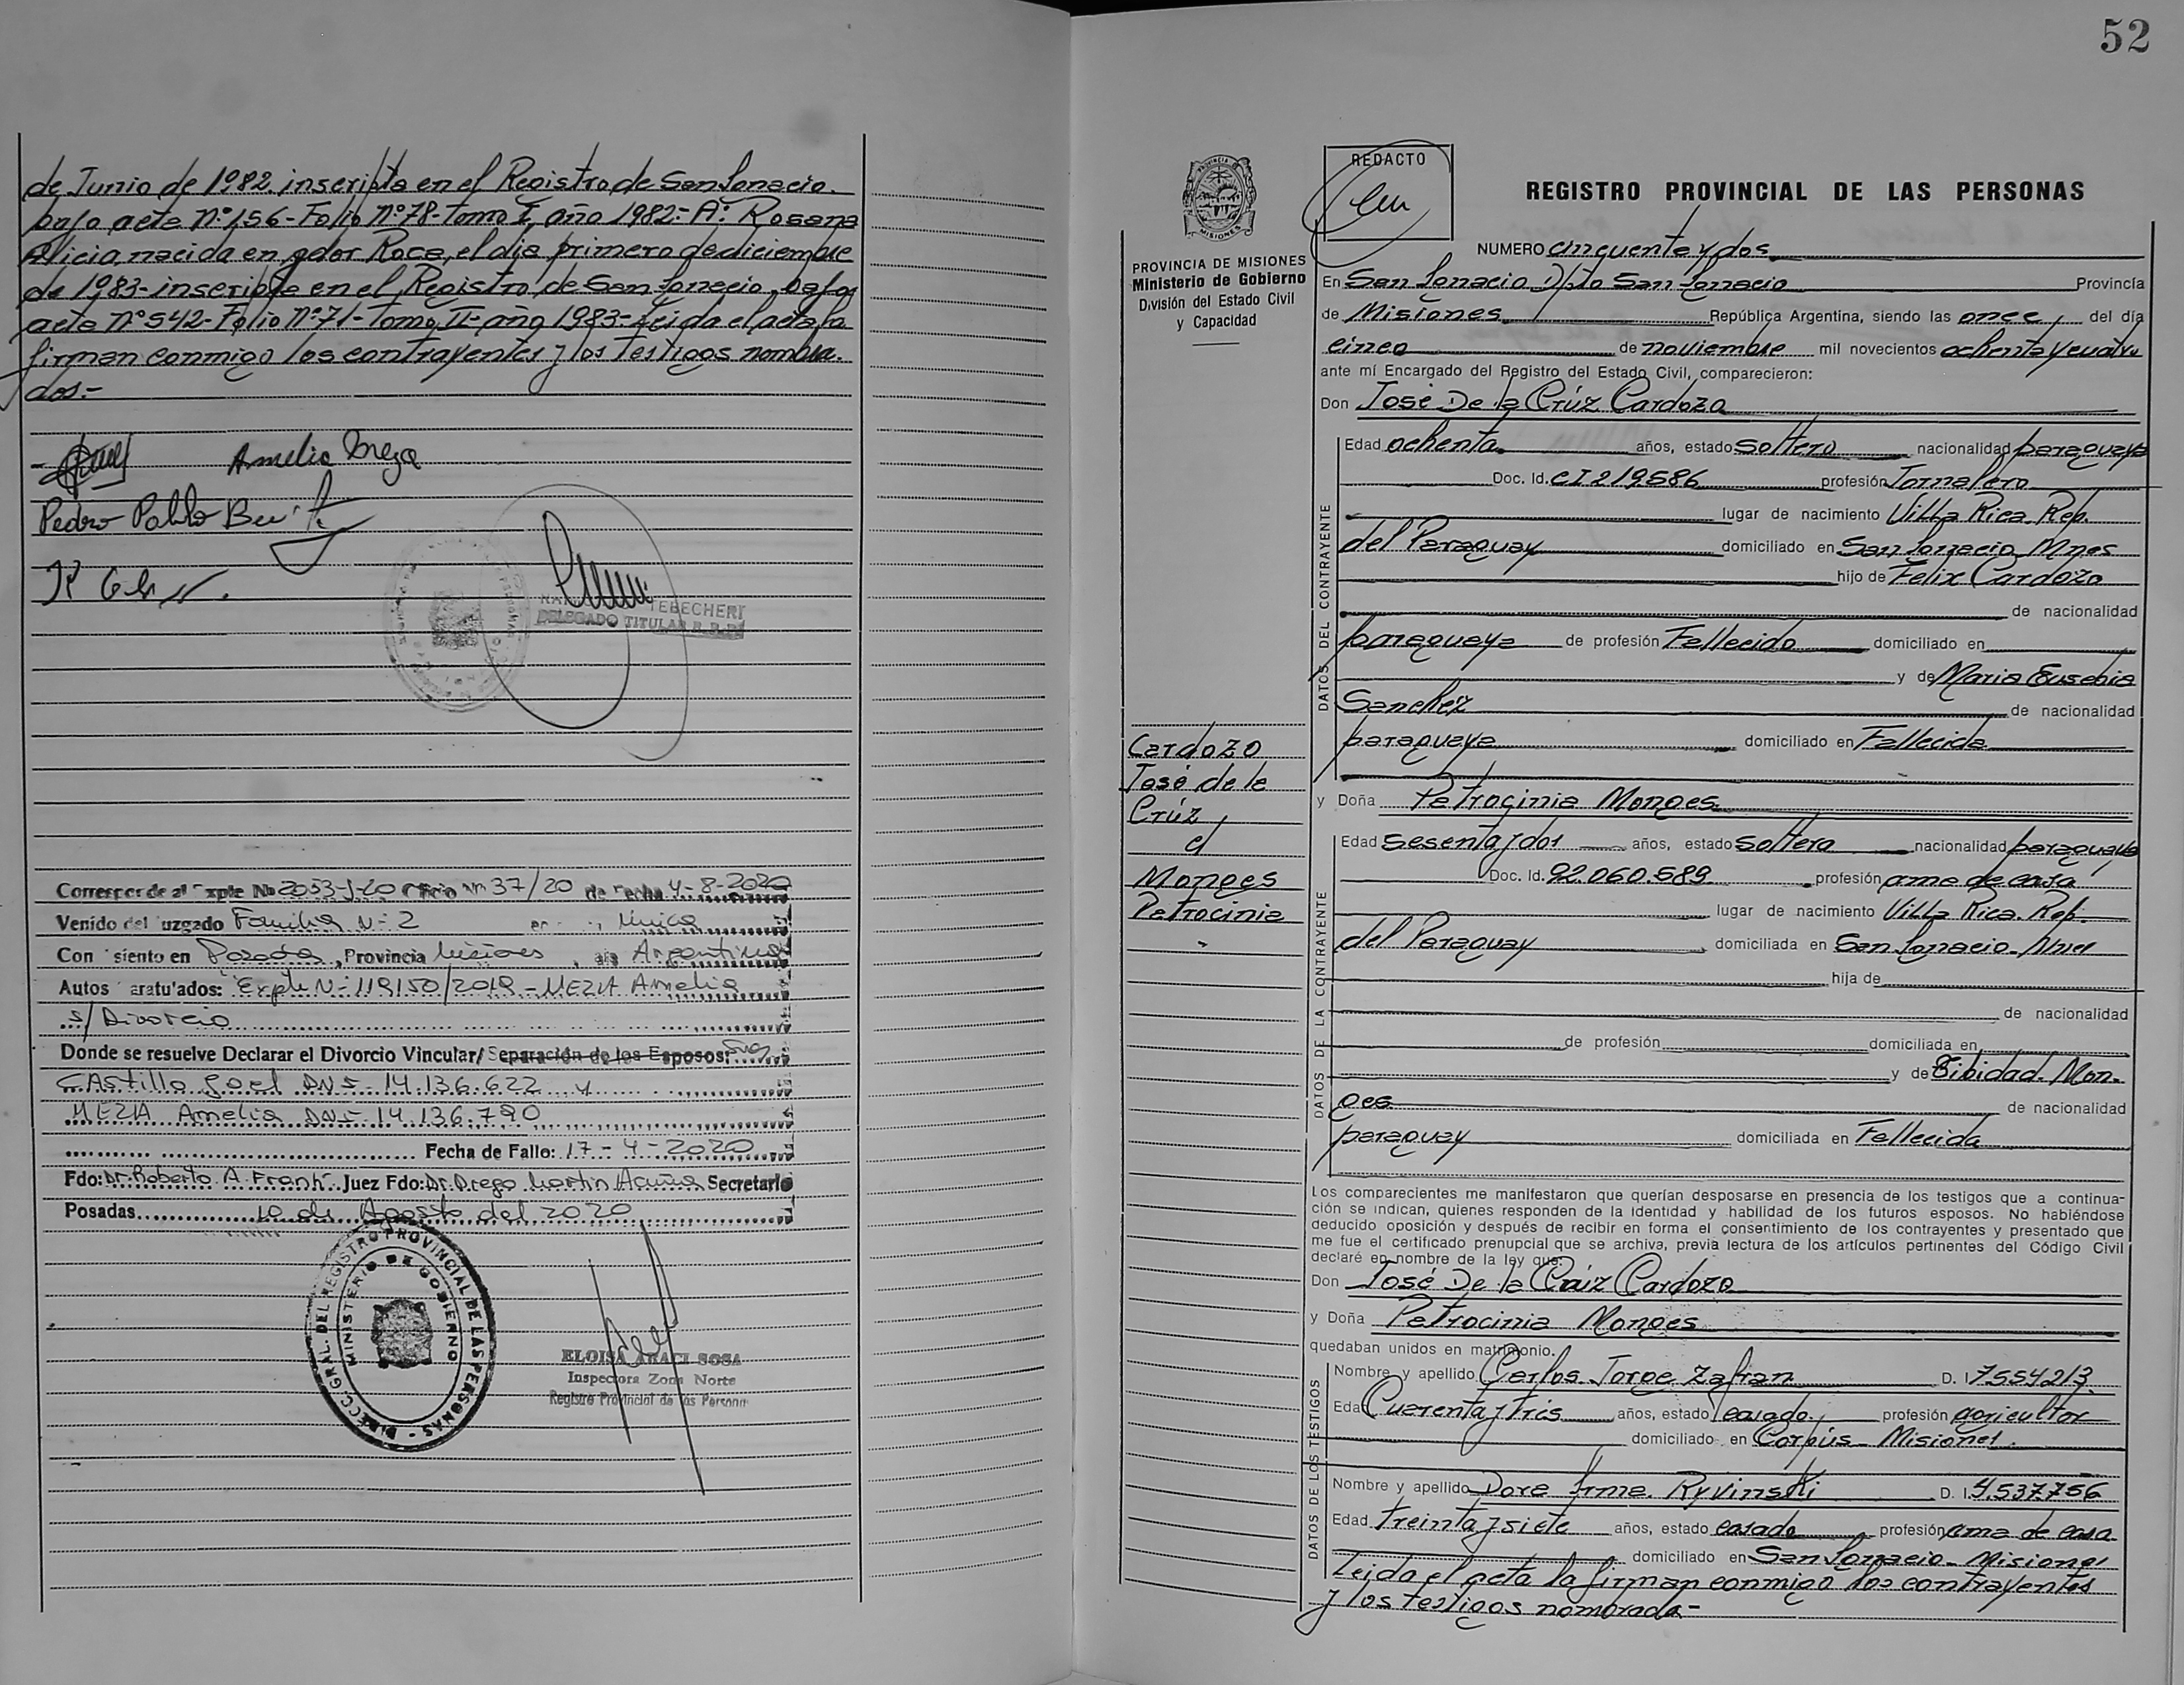 de Junio de 1982 inscripta en el Registro de San Ignacio.
bajo acta Nº 156- Folio Nº 78- Tomo I, año 1982:- A: Rosana
Alicia, nacida en gdor Roca, el dia primero de diciembre
de 1983- inscripta en el Registro de San Ignacio, bajo
acta Nº 542- Folio Nº 71- Tomo II- año 1983- Leida el acta la
firman conmigo los contrayentes y los Testigos nombra-
dos.-
Amelia Meza
Pedro Pablo
TEBECHERI
DELEGADO TITULAR R.P.P.
Corresponde al Expte Nº 2053-J-20 Oficio Nº 37/20 de Fecha 4-8-2020
Venido del Juzgado Familia Nº 2 Unica
Con asiento en Posadas, Provincia Misiones, Argentina
Autos Caratulados: "Expte Nº 119150/2019 - MEZA Amelia
s/ Divorcio
Donde se resuelve Declarar el Divorcio Vincular/ Separación de los Esposos:
CAstillo DNI- 14.136.622 y
MEZA Amelia DNI- 14.136.790
Fecha de Fallo: 17-4-2020
Fdo: Dr. Roberto A. Frank Juez Fdo: Dr. Diego Martin Acuña Secretario
Posadas 10 de Agosto del 2020
DIRECC. GRAL. DEL REGISTRO PROVINCIAL DE LAS PERSONAS
MINISTERIO DE GOBIERNO
ELOISA ARACI SOSA
Inspectora Zona Norte
Registro Provincial de las Personas
52
PROVINCIA DE MISIONES
REDACTO
REGISTRO PROVINCIAL DE LAS PERSONAS
PROVINCIA DE MISIONES
Ministerio de Gobierno
División del Estado Civil
y Capacidad
Cardozo
José de la
Crúz
c/
Monges
Patrocinia
NUMERO cincuenta y dos
En San Ignacio Dpto San Ignacio Provincia
de Misiones República Argentina, siendo las once del día
cinco de noviembre mil novecientos ochenta y cuatro
ante mí Encargado del Registro del Estado Civil, comparecieron:
Don José De la Crúz Cardozo
DATOS DEL CONTRAYENTE
Edad ochenta años, estado soltero nacionalidad paraguaya
Doc. Id. CI 219586 profesión Jornalero
lugar de nacimiento Villa Rica. Rep.
del Paraguay domiciliado en San Ignacio Mnes
hijo de Felix Cardozo
de nacionalidad
paraguaya de profesión Fallecido domiciliado en
y de Maria Eusebia
Sanchéz de nacionalidad
paraguaya domiciliado en Fallecida
y Doña Patrocinia Monges
DATOS DE LA CONTRAYENTE
Edad sesenta y dos años, estado soltera nacionalidad paraguaya
Doc. Id. 92.060.589 profesión ama de casa
lugar de nacimiento Villa Rica. Rep.
del Paraguay domiciliada en San Ignacio- Mnes
hija de
de nacionalidad
de profesión domiciliada en
y de Mon-
ges de nacionalidad
paraguay domiciliada en Fallecida
Los comparecientes me manifestaron que querían desposarse en presencia de los testigos que a continua-
ción se indican, quienes responden de la identidad y habilidad de los futuros esposos. No habiéndose
deducido oposición y después de recibir en forma el consentimiento de los contrayentes y presentado que
me fue el certificado prenupcial que se archiva, previa lectura de los artículos pertinentes del Código Civil
declaré en nombre de la ley que:
Don José De la Crúz Cardozo
y Doña Patrocinia Monges
quedaban unidos en matrimonio.
DATOS DE LOS TESTIGOS
Nombre y apellido Carlos Jorge Zafran D. I 7554213
Edad Cuarenta y Trés años, estado casado profesión agricultor
domiciliado en Corpús- Misiones.
DATOS DE LOS TESTIGOS
Nombre y apellido Dora Irma. Ryvinski D. I. 4.537.756
Edad treinta y siete años, estado casada profesión ama de casa
domiciliado en San Ignacio- Misiones
Leida el acta la firman conmigo los contrayentes
y los testigos nombrados-